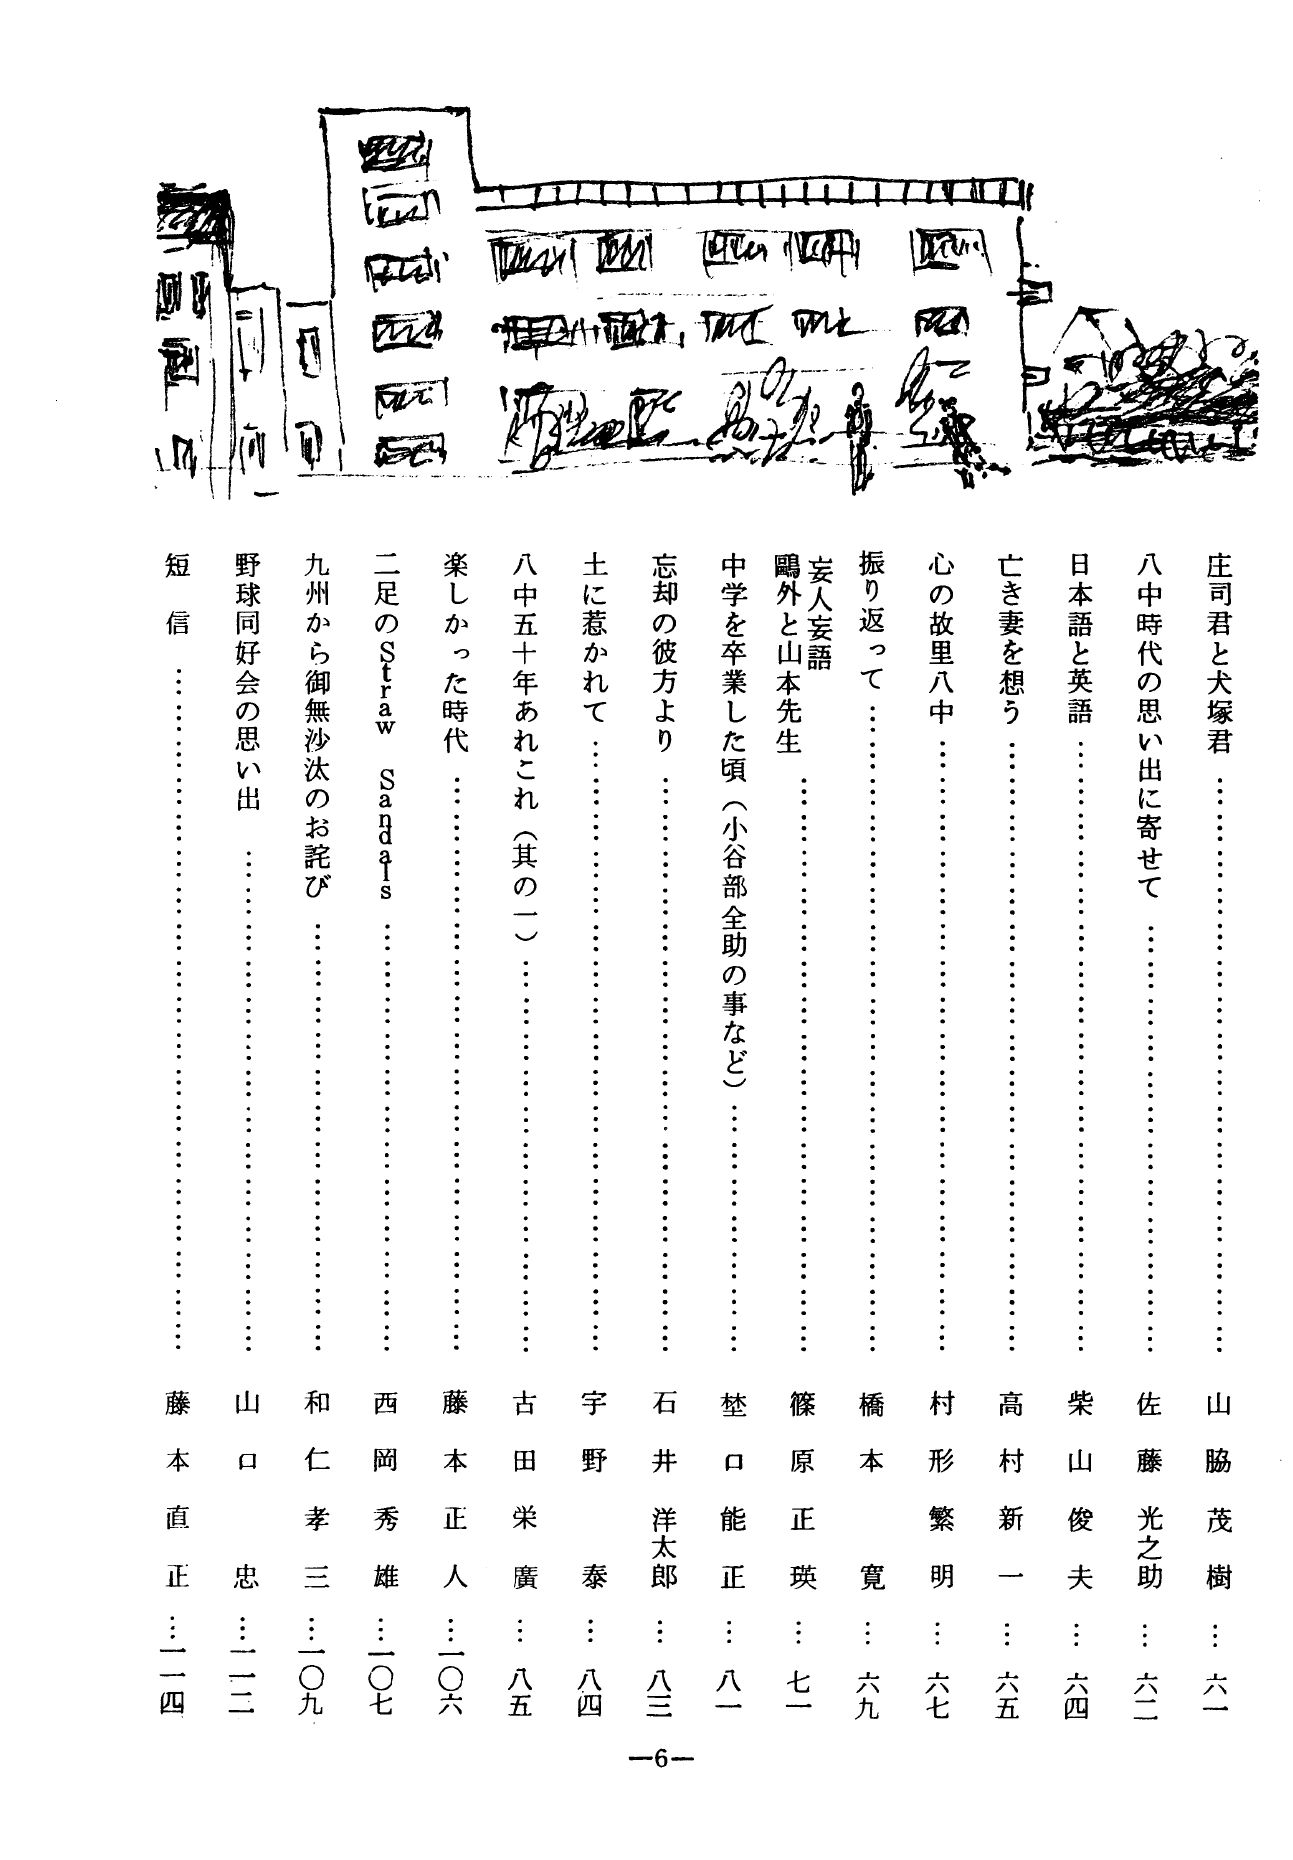 庄司君と犬塚君………山脇茂樹…六一
八中時代の思い出に寄せて………佐藤光之助…六二
日本語と英語………柴山俊夫…六四
亡き妻を想う………高村新一…六五
心の故里八中………村形繁明…六七
振り返って………橋本寛…六九
妄人妄語
鷗外と山本先生………篠原正瑛…七一
中学を卒業した頃（小谷部全助の事など）………埜口能正…八一
忘却の彼方より………石井洋太郎…八三
土に惹かれて………宇野泰…八四
八中五十年あれこれ（其の一）………古田栄廣…八五
楽しかった時代………藤本正人…一〇六
二足のStraw Sandals………西岡秀雄…一〇七
九州から御無沙汰のお詫び………和仁孝三…一〇九
野球同好会の思い出………山口忠…一一二
短信………藤本直正…一一四
—6—